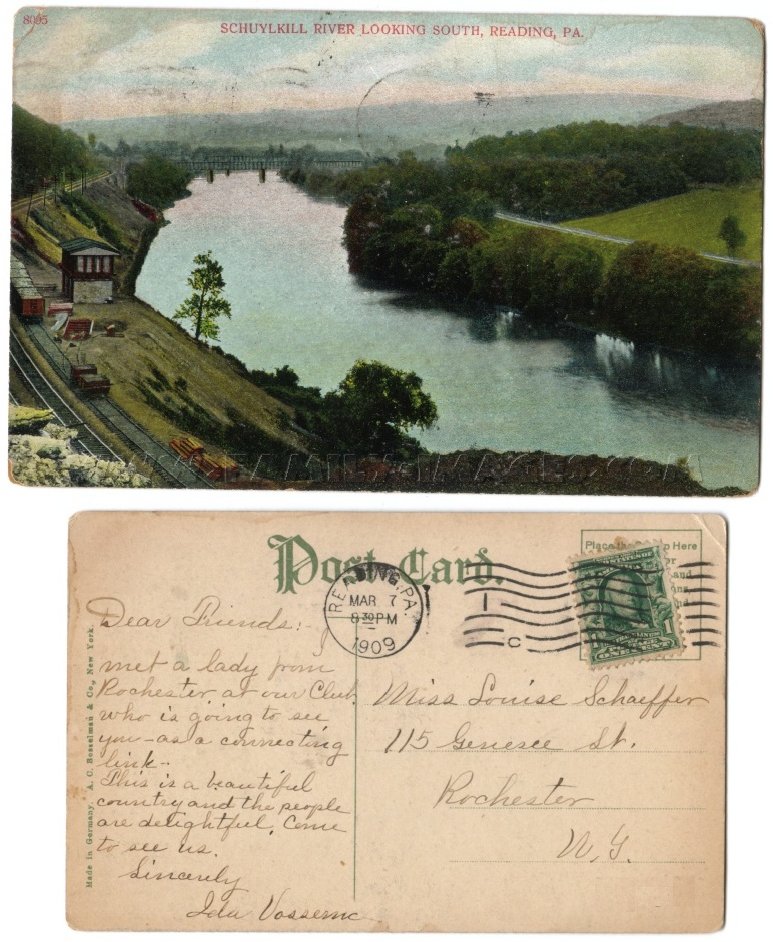 8095
SCHUYLKILL RIVER LOOKING SOUTH, READING, PA.
WWW.FAMILY-IMAGES.COM
Post Card.
Place the Stamp Here
READING, PA.
MAR 7
8 30 PM
1909
C
ONE CENT
Made in Germany. A. C. Bosselman & Co., New York.
Dear Friends:- I
met a lady from
Rochester at our Club
who is going to see
you - as a connecting
link -
This is a beautiful
country and the people
are delightful. Come
to see us.
Sincerely
Ida
Miss Louise Schaeffer
115 Genesee St.
Rochester
N.Y.